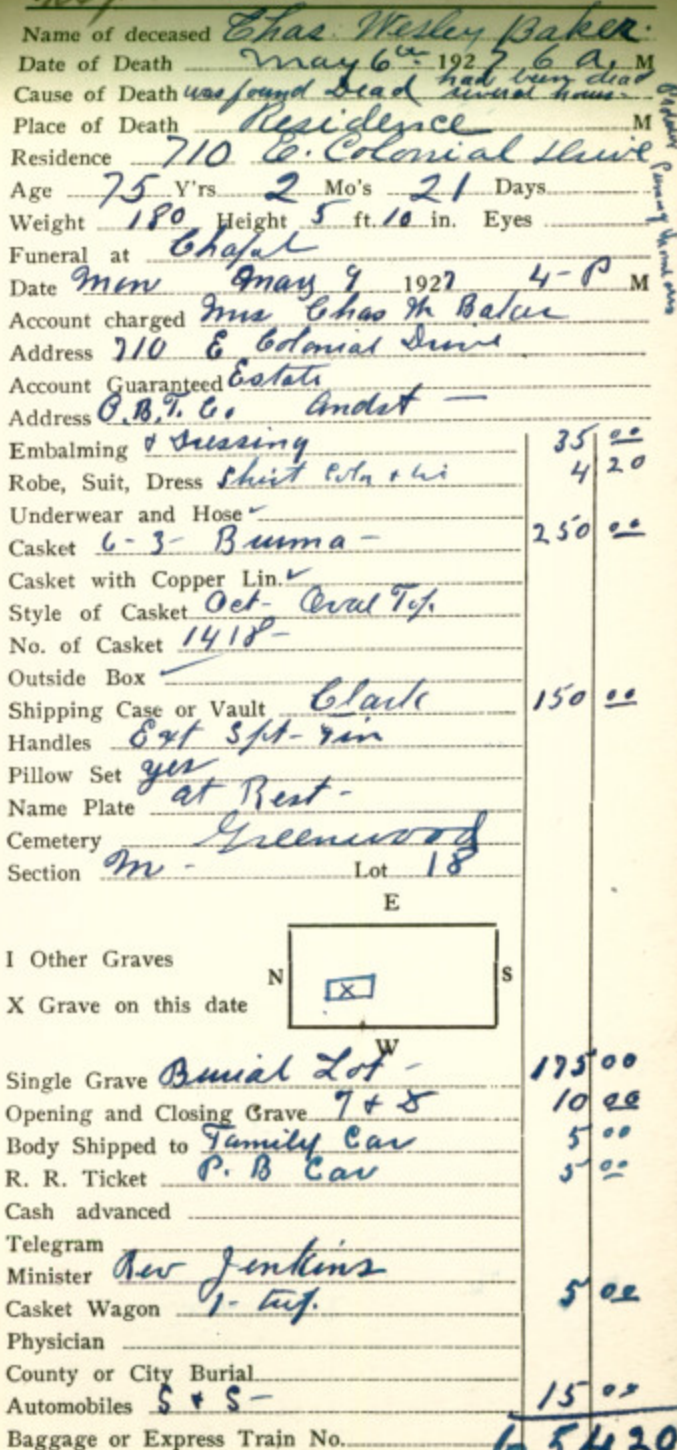 Name of deceased Chas. Wesley Baker.
Date of Death May 6th 1927 6 a. M
Cause of Death was found Dead had been dead several hours-
Place of Death Residence M
Residence 710 E. Colonial Drive
Age 75 Y'rs 2 Mo's 21 Days
Weight 180 Height 5 ft. 10 in. Eyes
Funeral at Chapel
Date Mon May 9 1927 4-P M
Account charged Mrs Chas W Baker
Address 710 E Colonial Drive
Account Guaranteed Estate
Address O.B.T. Co.
Embalming & Dressing 35 00
Robe, Suit, Dress Shirt 4 20
Underwear and Hose
Casket 6-3- Burma - 250 00
Casket with Copper Lin.
Style of Casket Oct- Oval Top.
No. of Casket 1418-
Outside Box
Shipping Case or Vault Clark 150 00
Handles Ext
Pillow Set yes
Name Plate at Rest-
Cemetery Greenwood
Section M - Lot 18
E
I Other Graves
N S
X
X Grave on this date
W
Single Grave Burial Lot - 175 00
Opening and Closing Grave 7 & 8 10 00
Body Shipped to Family Car 5 00
R. R. Ticket P. B Car 5 00
Cash advanced
Telegram
Minister Rev Jenkins
Casket Wagon 1- 5 00
Physician
County or City Burial
Automobiles S & S- 15 00
Baggage or Express Train No. 654 20